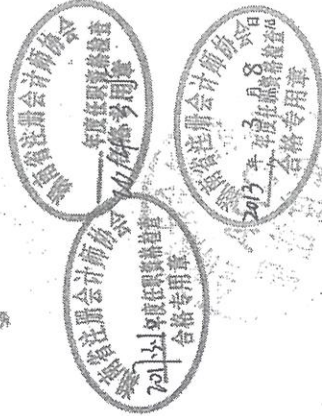 湖南省注册会计师协会
年度任职资格检查
合格专用章
湖南省注册会计师协会
2017.3.21年度任职资格检查
合格专用章
湖南省注册会计师协会
2013年3月8日
年度任职资格检查
合格专用章